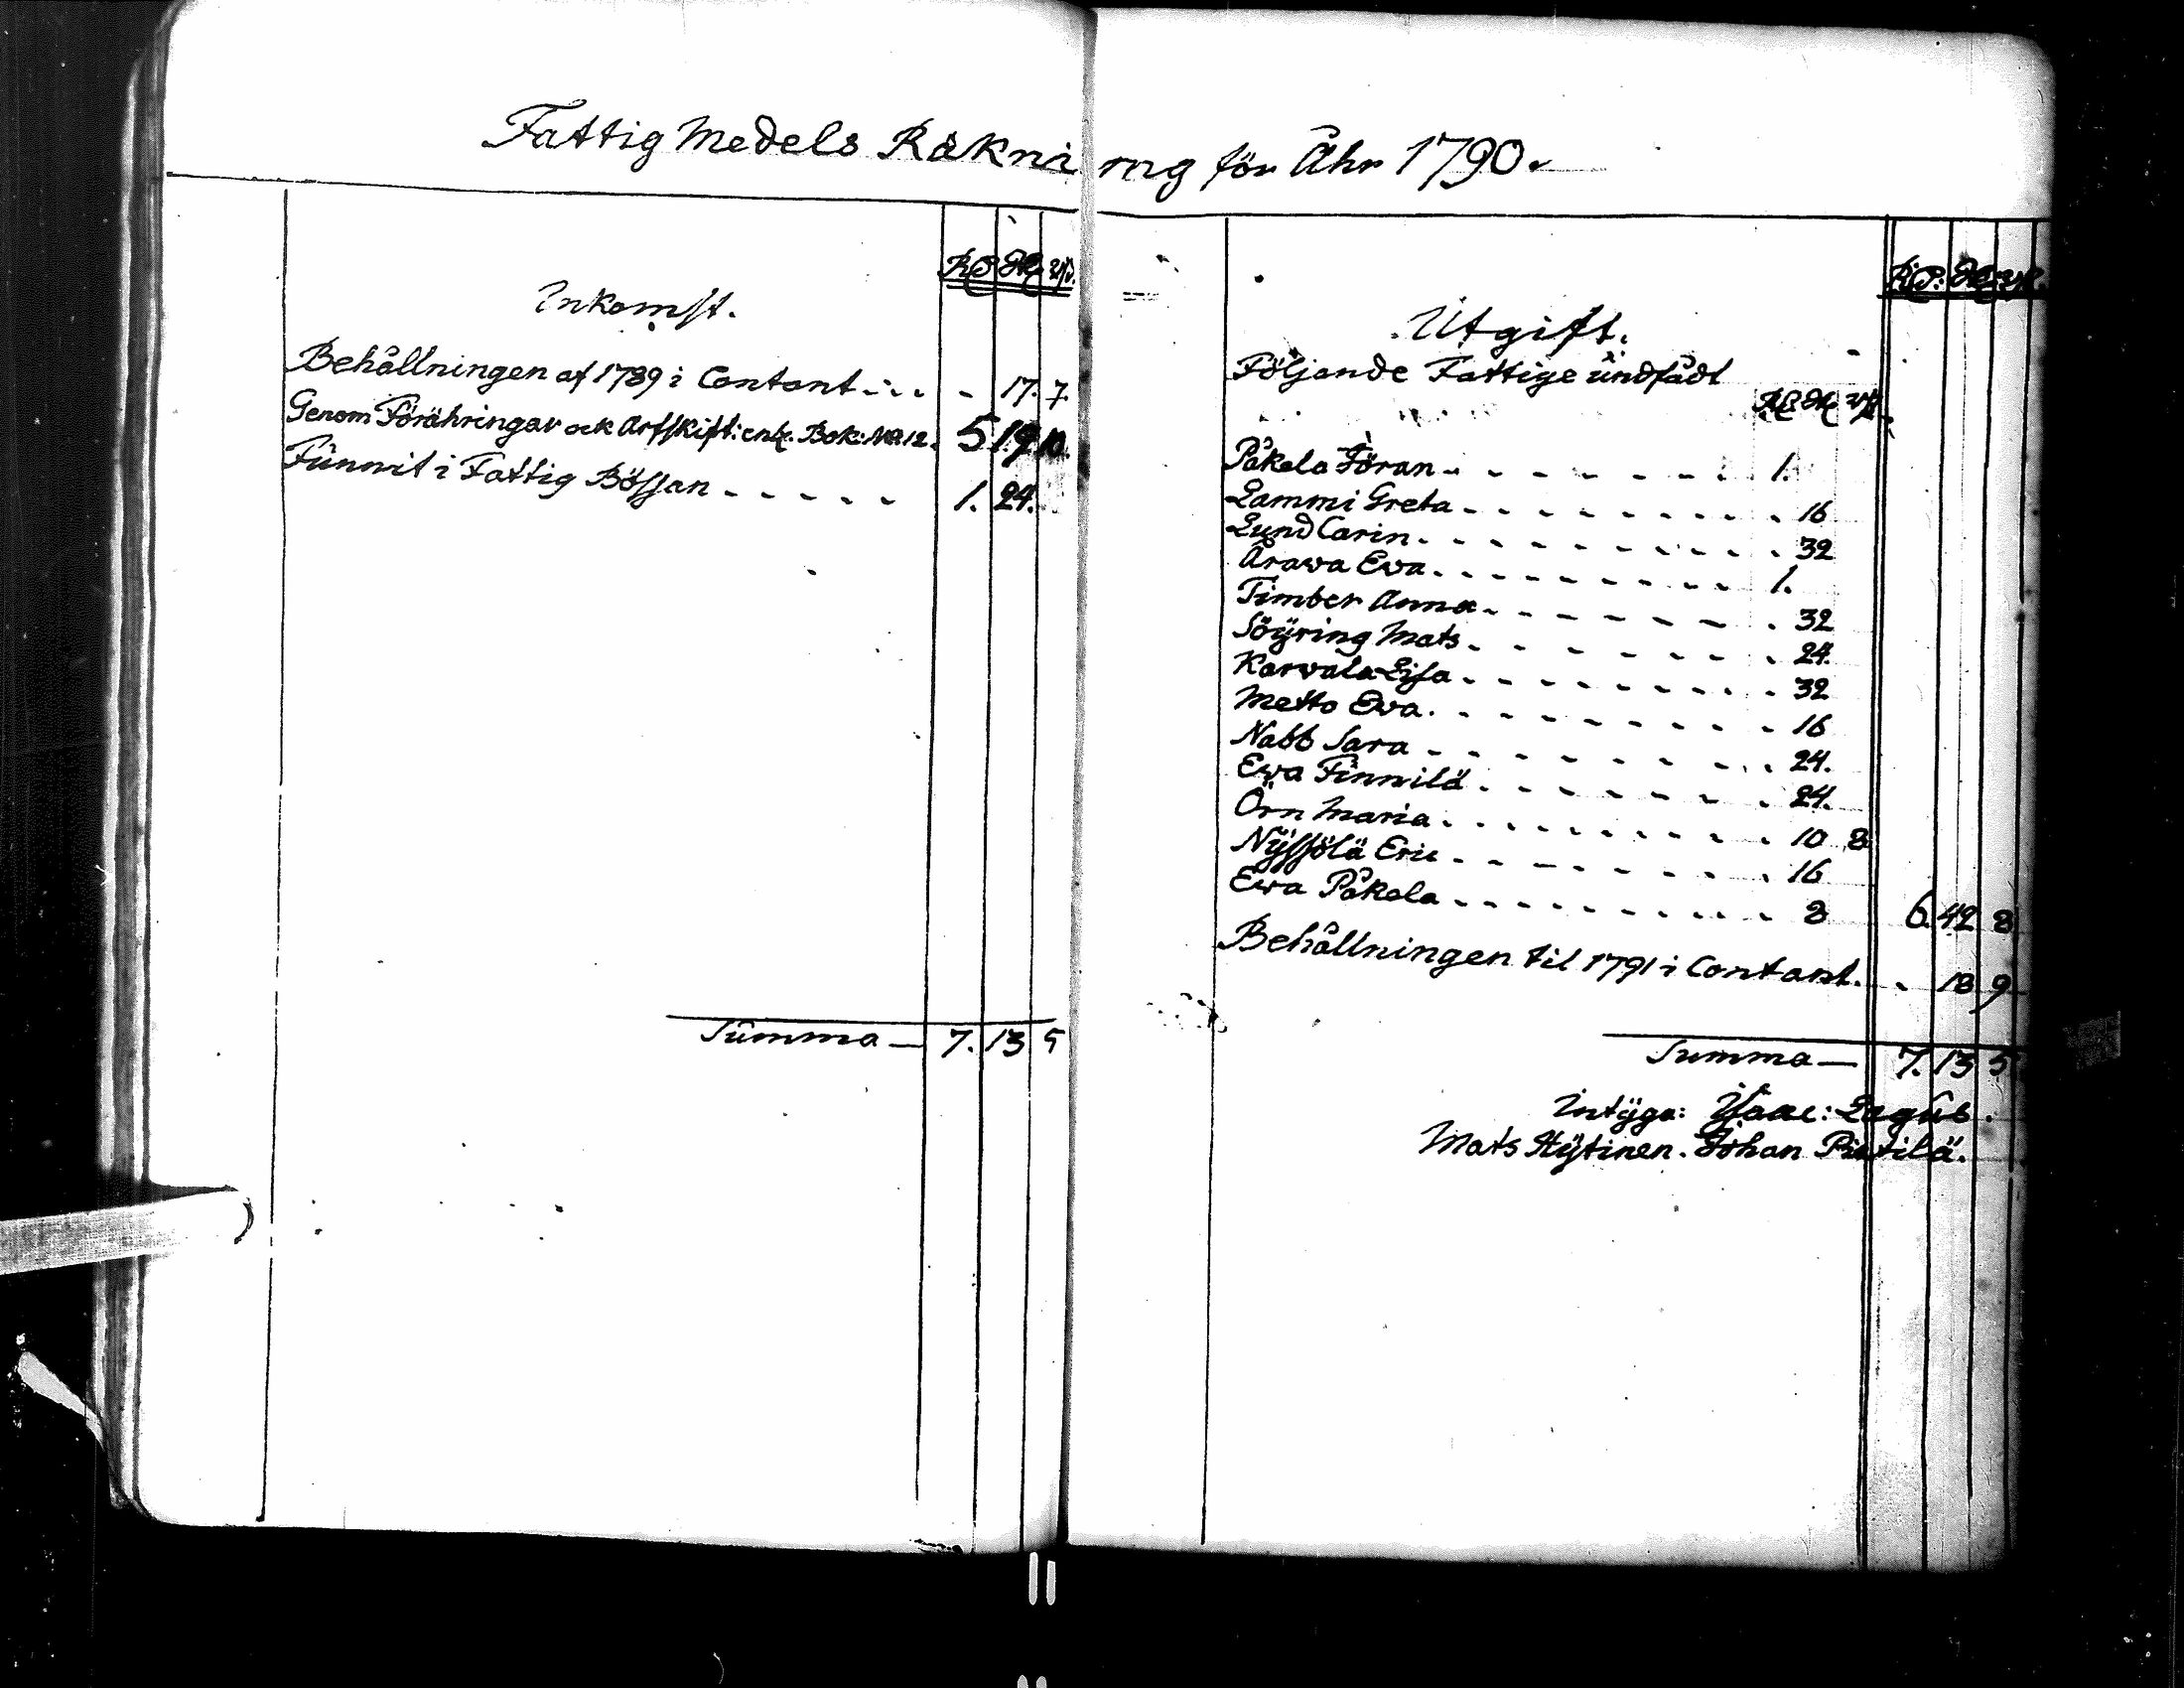 Fattig Medels Räkning för Åhr 1790.
Rd sk rst.
Inkomst.
Behållningen af 1789 i Contant - 17. 7.
Genom Förähringar ock Arfskift: enl. Bok: No 12. 5. 19. 10.
Funnit i Fattig Bössan - - - - - 1. 24.
Summa — 7. 13 5
Rd: sk rst.
Utgift.
Följande Fattige undfådt
Rd sk rst.
Påkela Jöran - - - - - - 1.
Lammi Greta - - - - - - 16
Lund Carin - - - - - - 32
Arawa Ewa - - - - - - 1.
Timber Anna - - - - - - 32
Söyring Mats - - - - - - 24.
Karvala Lisa - - - - - - 32
Metto Ewa - - - - - - 16
Nabb Sara - - - - - - 24.
Ewa Finnilä - - - - - - 24.
Örn Maria - - - - - - 10 8
Nyssölä Eric - - - - - - 16
Ewa Påkela - - - - - - 8 6. 42 8
Behållningen til 1791 i Contant. - 18 9
Summa — 7. 13 5
Intyga: Isaac: Legus.
Mats Hytinen. Johan Pietilä.